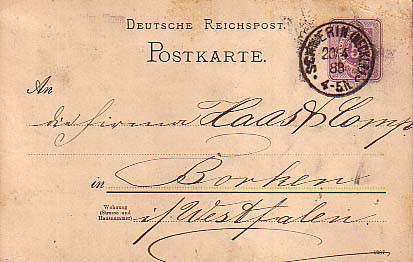 DEUTSCHE REICHSPOST.
POSTKARTE.
SCHWERIN (MECKLB)
20/4
89
4-5N.
An
die Firma Haas & Comp
in Borken
Wohnung
(Strasse und
Hausnummer)
i/Westfalen.